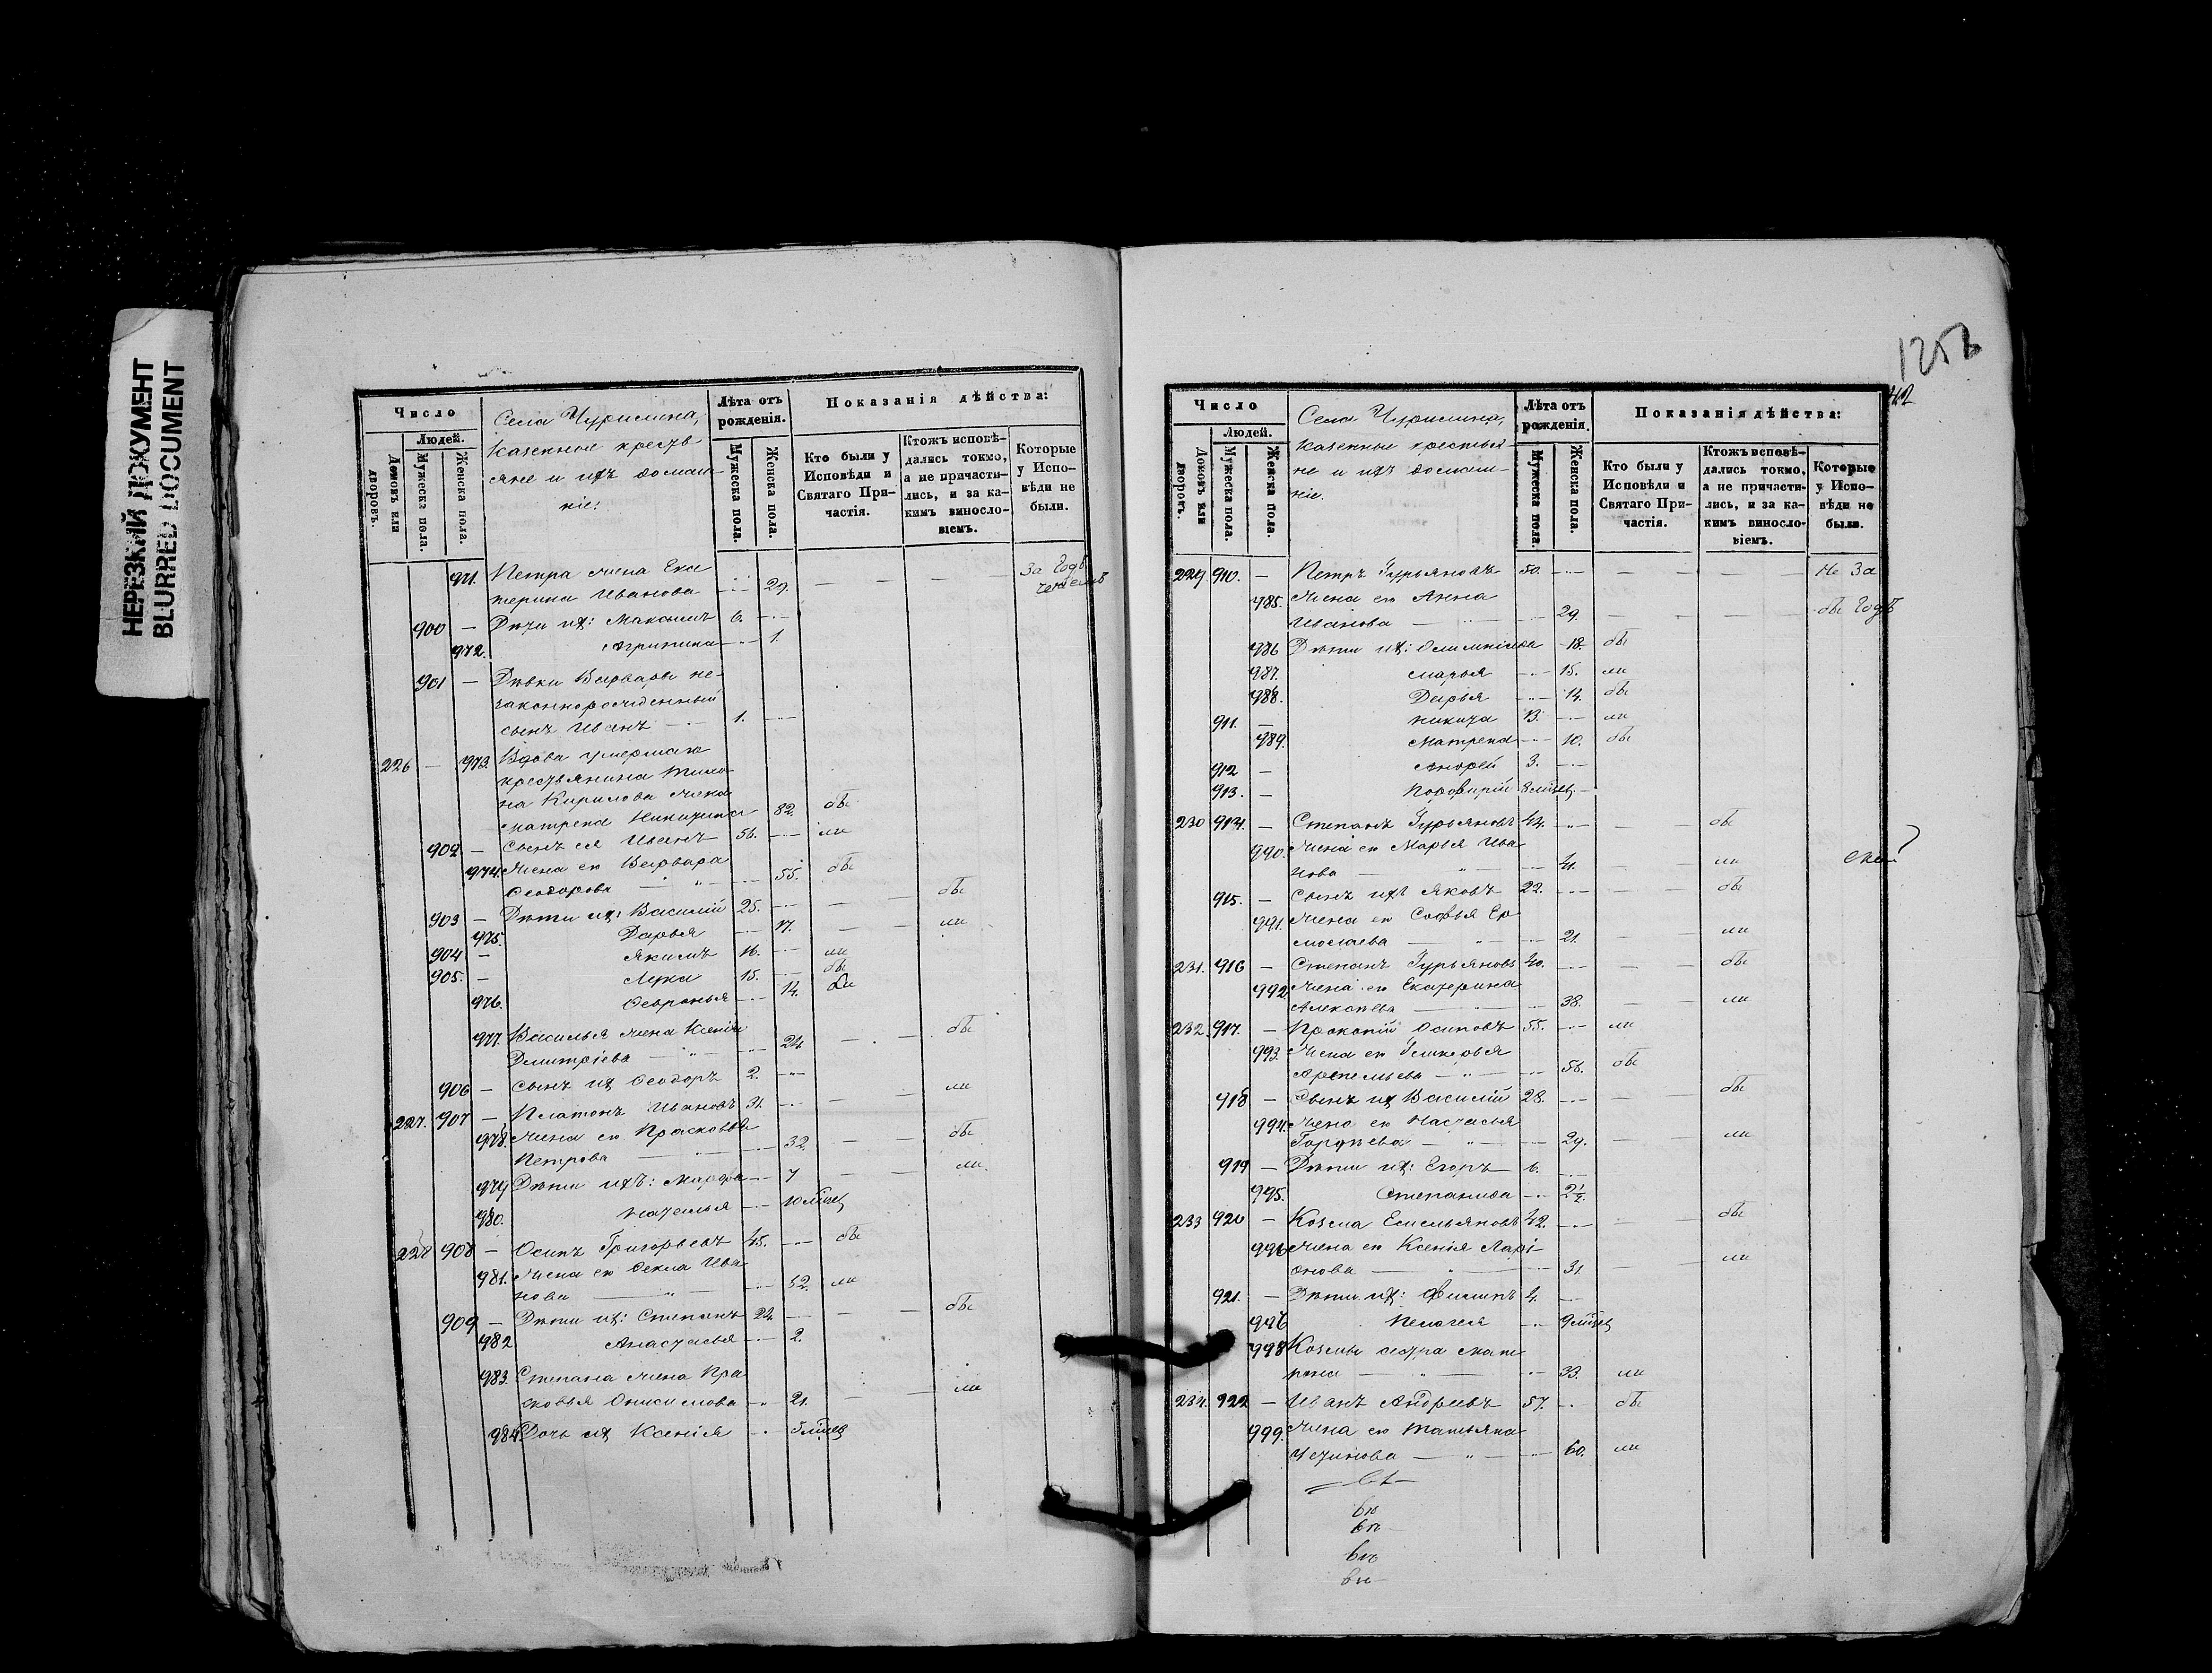 НЕРЕЗКИЙ ДОКУМЕНТ
BLURRED DOCUMENT
Число
Людей.
Домовъ или дворовъ.
Мужеска пола.
Женска пола.
Села Чурилина,
казенные кресть
яне и ихъ домаш
ніе:
Лѣта отъ рожденія.
Мужеска пола.
Женска пола.
Показанія дѣйства:
Кто были у Исповѣди и Святаго При-частія.
Ктожъ исповѣ-дались токмо, а не причасти-лись, и за ка-кимъ винослo-віемъ.
Которые у Испо-вѣди не были.
971. Петра жена Ека
терина Иванова 29. — — За
900 — Дѣти их: Максимъ 6.
972. Агрипина 1.
901 — Дѣвки Варвары не-
законнорожденный
сынъ Иванъ 1.
226 — 973. Вдова умершаго
крестьянина Тимо
на Кирилова жена
Матрена Никитина 82. бы
902 — Сынъ ея Иванъ 56. ли
974. Жена ео Варвара
Ѳеодорова 55. бы
903 — Дѣти их: Василій 25. — — бы
975. Дарья 17. — — ли
904 — Якимъ 16. ли
905. — Лука 15. бы
976. Ѳевронья 14. бы
977. Василья жена Ксенія
Дмитріева 24. — — бы
906 — Сынъ их Ѳеодоръ 2.
227. 907 — Платонъ Ивановъ 31. — — ли
978. Жена ео Прасковья
Петрова 32. — — бы
979 Дѣти ихъ: Марфа 7 — — ли
980. Наталья 10 мѣсц
228 908 — Осипъ Григорьевъ 45. бы
981. Жена ео Ѳекла Ива
нова 52. ли
909 — Дѣти их: Степанъ 24. — — бы
982 Анастасья 2.
983. Степана жена Пра
сковья Онисимова 21. — — ли
984. Дочь их Ксенія 5 мѣсц
125
42
Число
Людей.
Домовъ или дворовъ.
Мужеска пола.
Женска пола.
Села Чурилина,
казенные крестья-
не и ихъ домаш-
ніе.
Лѣта отъ рожденія.
Мужеска пола.
Женска пола.
Показанія дѣйства:
Кто были у Исповѣди и Святаго При-частія.
Ктожъ исповѣ-дались токмо, а не причасти-лись, и за ка-кимъ винослo-віемъ.
Которые у Испо-вѣди не были.
229. 910. — Петръ Гурьяновъ 50. — — Не За
985. Жена ео Анна
Иванова 29. — — бы
986 Дѣти их: Олимпіада 18. бы
987. Марья 15. ли
988. Дарья 14. бы
911. — Никита 13. ли
989. Матрена 10. бы
912 — Андрей 3.
913. — Порфирій 8 мѣсц.
230 914. — Степанъ Гурьяновъ 44. — бы
990. Жена ео Марья Ива
нова 41. — ли
915. — Сынъ ихъ Яковъ 22. — бы
991. Жена ео Софья Ер
молаева 21. — ли
231. 916 — Степанъ Гурьяновъ 40. — бы
992. Жена ео Екатерина
Алексѣева 38. — ли
232. 917. — Прокопій Осиповъ 55. ли
993. Жена ео Гликерья
Арсеньева 56. бы
918 — Сынъ их Василій 28. — бы
994. Жена ео Настасья
Гордѣева 29. — ли
919 — Дѣти их: Егоръ 6.
995. Степанида 2½
233 920 — Козма Емельяновъ 42. — бы
996 Жена ео Ксенія Ларі-
онова 31. — ли
921. — Дѣти их: Филипъ 4.
996 Пелагея 9 мѣсц
998 Козмы сестра Мат
рона 33. ли
234. 922 — Иванъ Андреевъ 57. бы
999. Жена ео Татьяна
Устинова 60. ли